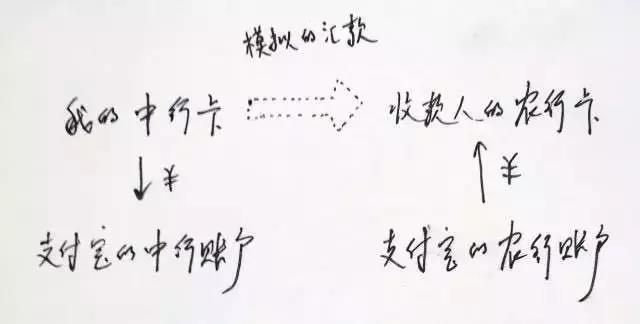 模拟的汇款
我的中行卡 收款人的农行卡
¥ ¥
支付宝的中行账户 支付宝的农行账户